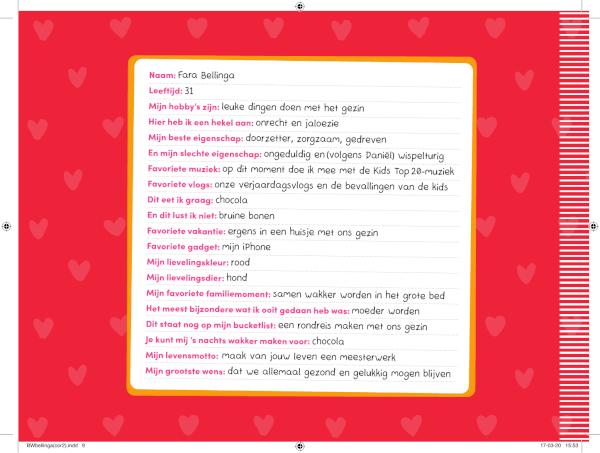 Naam: Fara Bellinga
Leeftijd: 31
Mijn hobby's zijn: leuke dingen doen met het gezin
Hier heb ik een hekel aan: onrecht en jaloezie
Mijn beste eigenschap: doorzetter, zorgzaam, gedreven
En mijn slechte eigenschap: ongeduldig en (volgens Daniël) wispelturig
Favoriete muziek: op dit moment doe ik mee met de Kids Top 20-muziek
Favoriete vlogs: onze verjaardagsvlogs en de bevallingen van de kids
Dit eet ik graag: chocola
En dit lust ik niet: bruine bonen
Favoriete vakantie: ergens in een huisje met ons gezin
Favoriete gadget: mijn iPhone
Mijn lievelingskleur: rood
Mijn lievelingsdier: hond
Mijn favoriete familiemoment: samen wakker worden in het grote bed
Het meest bijzondere wat ik ooit gedaan heb was: moeder worden
Dit staat nog op mijn bucketlist: een rondreis maken met ons gezin
Je kunt mij 's nachts wakker maken voor: chocola
Mijn levensmotto: maak van jouw leven een meesterwerk
Mijn grootste wens: dat we allemaal gezond en gelukkig mogen blijven
BWbellinga(cor2).indd 9
17-03-20 15:53